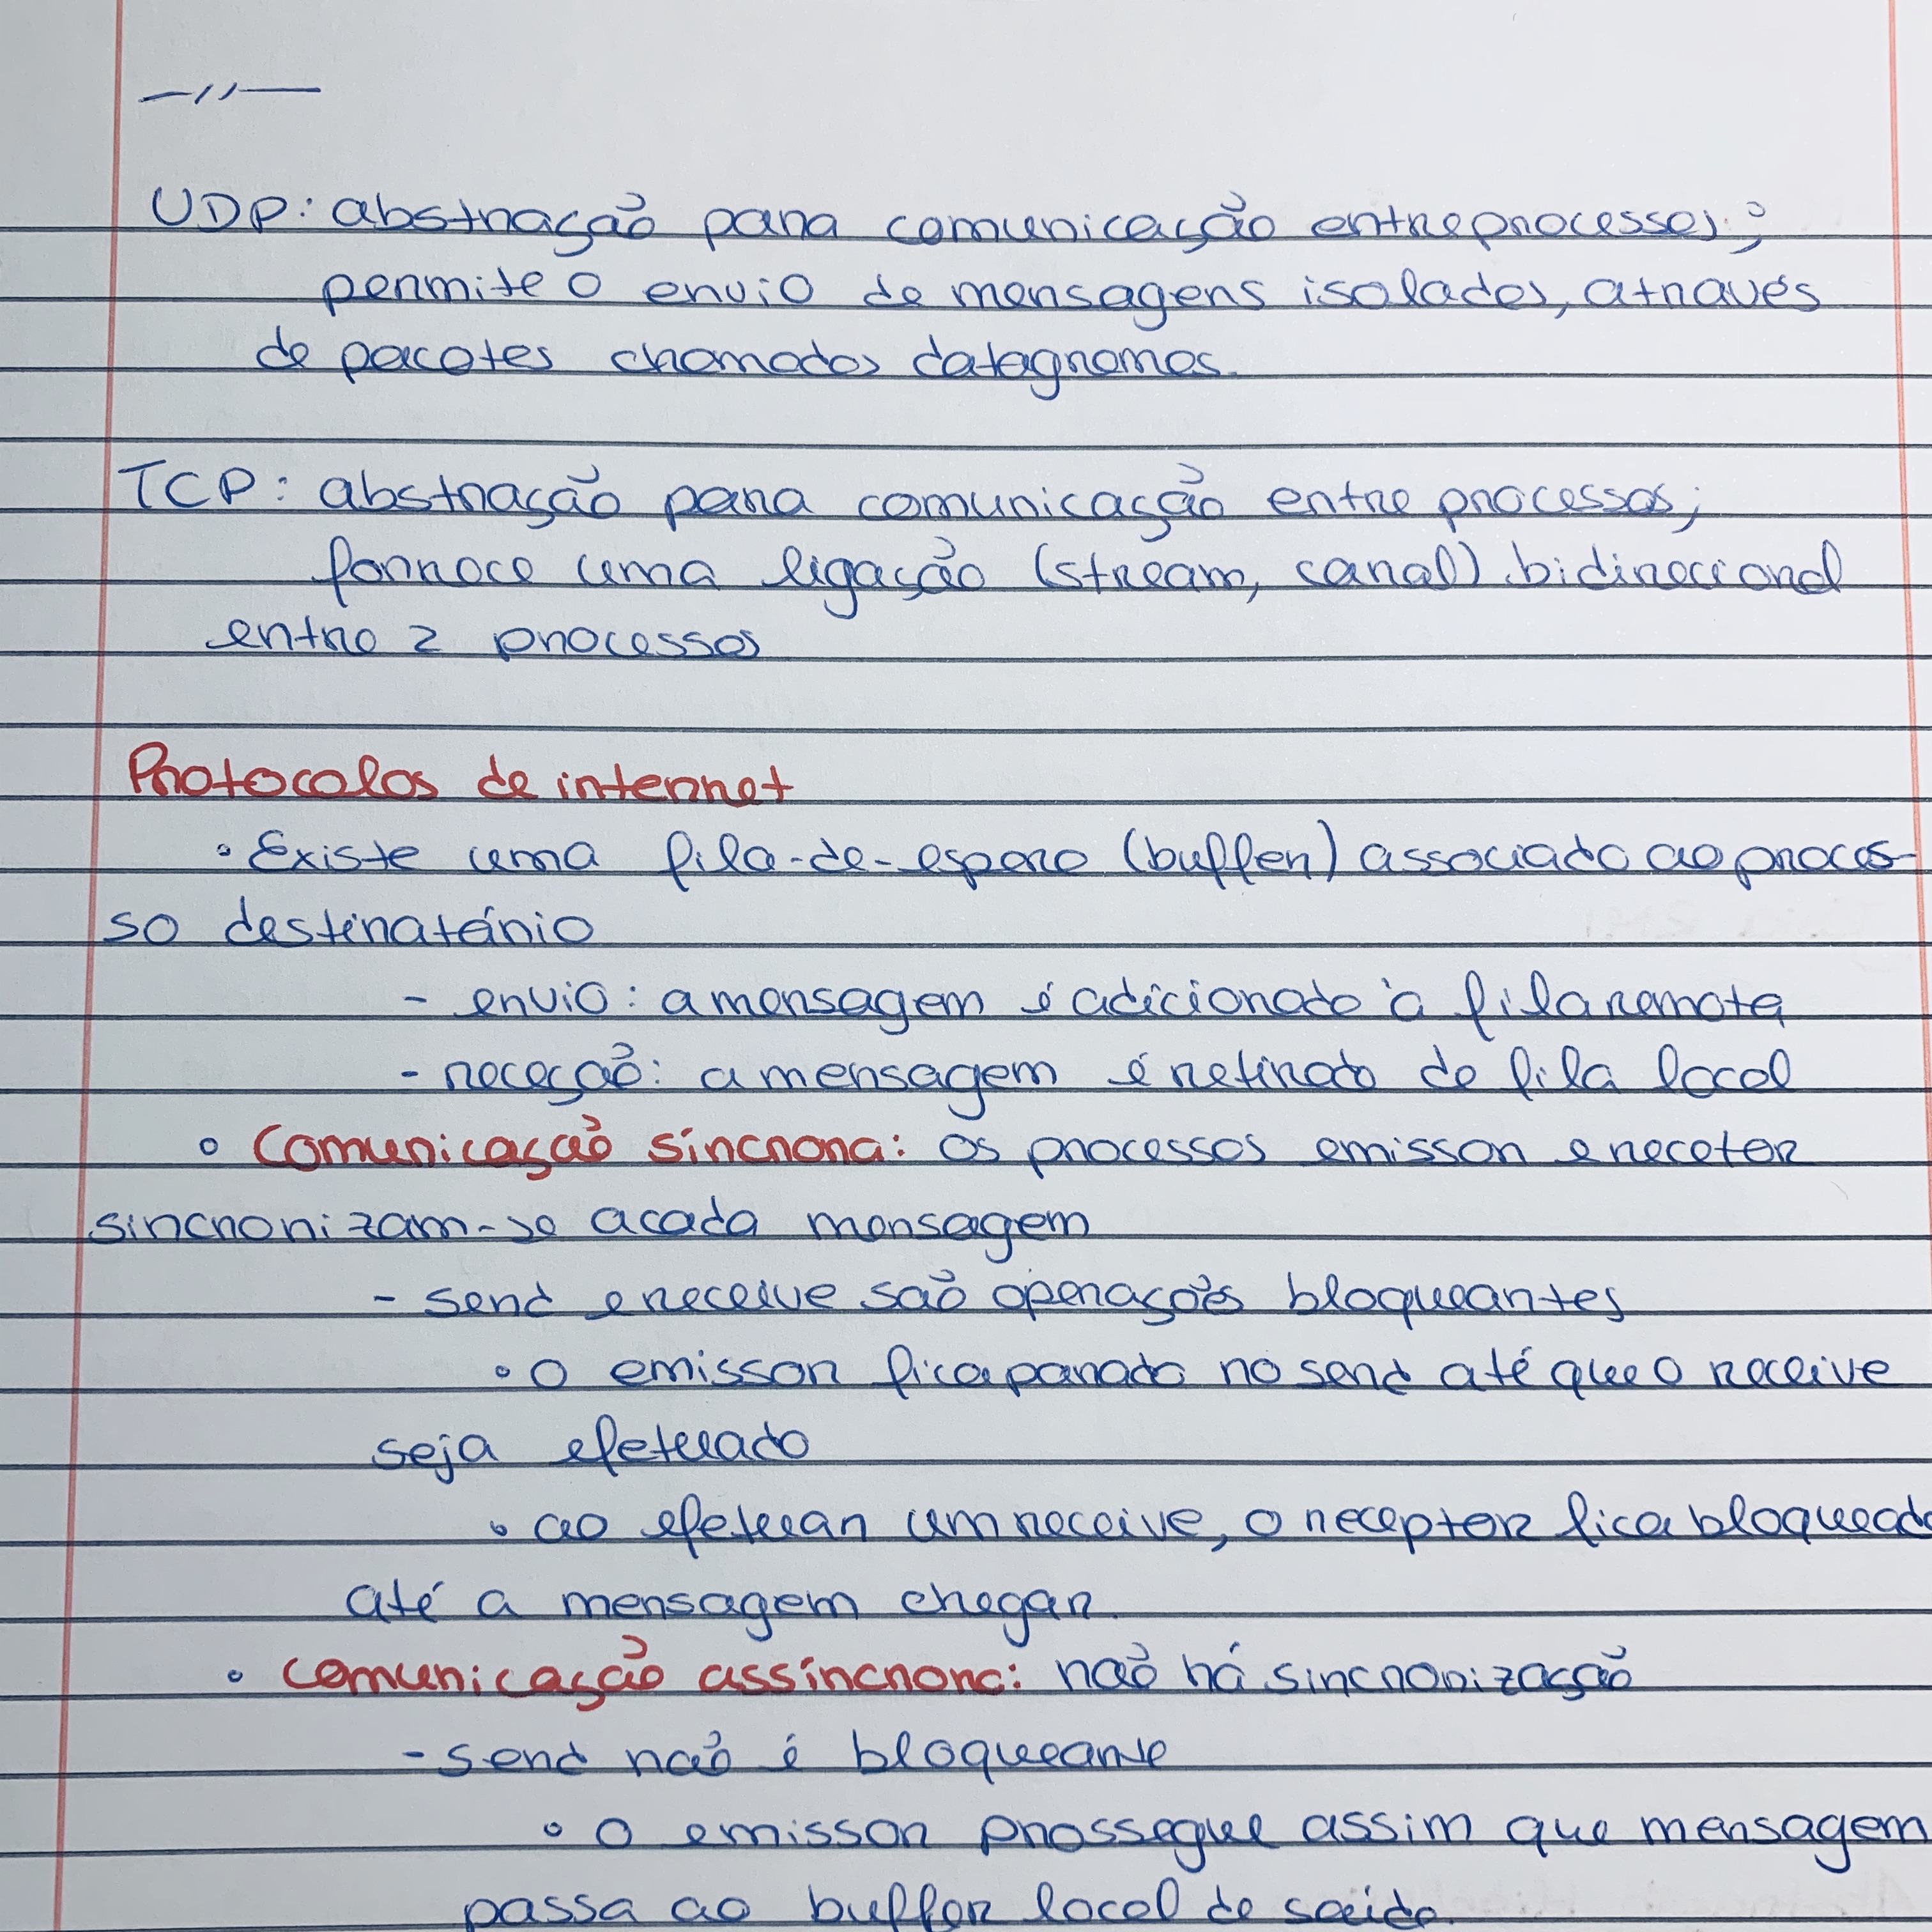 —//—
UDP: abstração para comunicação entre processos;
permite o envio de mensagens isolados, através
de pacotes chamados datagramas.
TCP: abstração para comunicação entre processos;
fornece uma ligação (stream, canal) bidirecional
entre 2 processos
Protocolos de internet
• Existe uma fila-de-espera (buffer) associado ao proces-
so destinatário
- envio: a mensagem é adicionado à fila remota
- receção: a mensagem é retirado da fila local
• Comunicação síncrona: os processos emissor e recetor
sincronizam-se a cada mensagem
- send e receive são operações bloqueantes
• o emissor fica parado no send até que o receive
seja efetuado
• ao efetuar um receive, o receptor fica bloqueado
até a mensagem chegar.
• comunicação assíncrona: não há sincronização
- send não é bloqueante
• o emissor prossegue assim que mensagem
passa ao buffer local de saída.